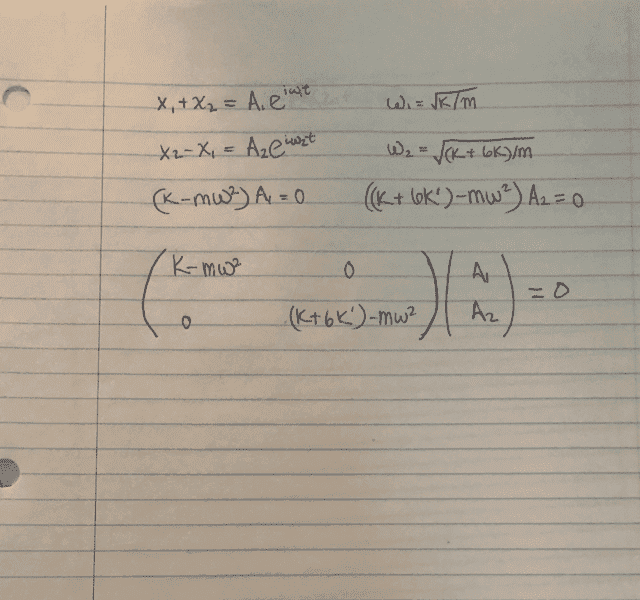 x₁+x₂ = A₁e^{iω₁t} ω₁ = √K/m
x₂-x₁ = A₂e^{iω₂t} ω₂ = √(K+6K)/m
(K-mω²) A₁ = 0 ((K+6K')-mω²) A₂ = 0
( K-mω² 0 ) ( A₁ ) = 0
( 0 (K+6K')-mω² ) ( A₂ )